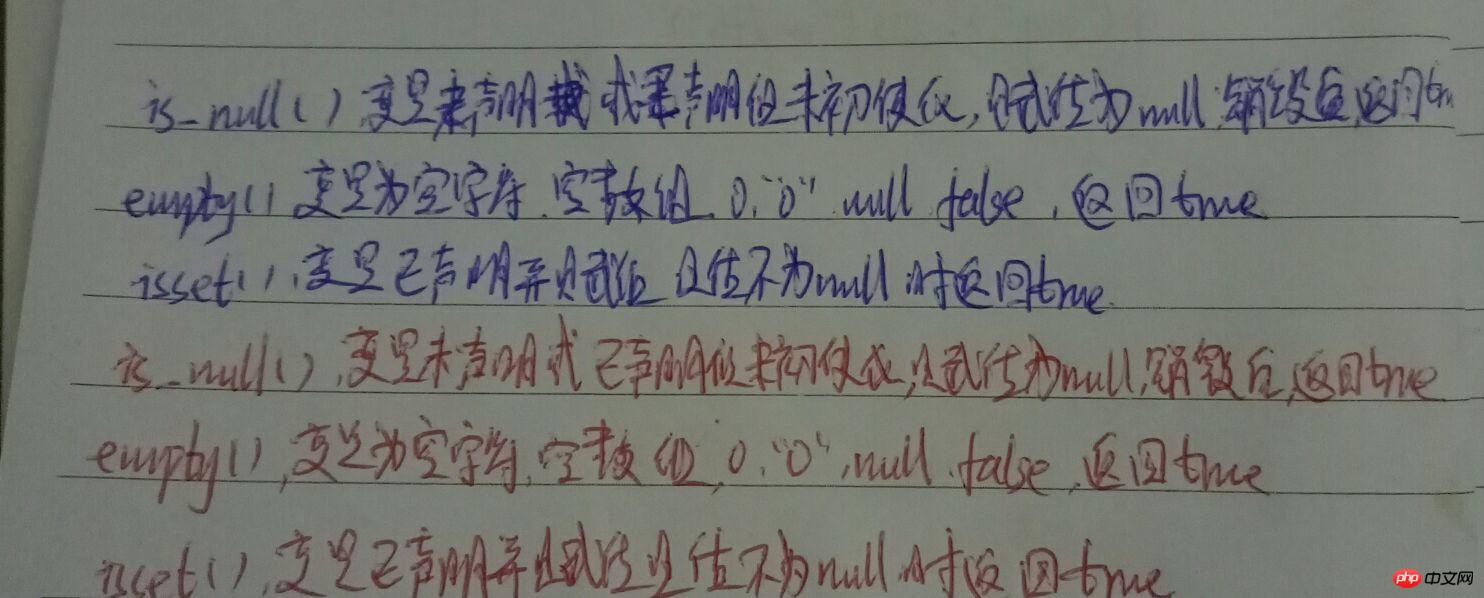 is_null(),变量未声明或已声明但未初使化,赋值为null,销毁后,返回tru
empty(),变量为空字符,空数组,0,"0",null,false,返回true
isset(),变量已声明并赋值且值不为null时返回true
is_null(),变量未声明或已声明但未初使化,赋值为null,销毁后,返回true
empty(),变量为空字符,空数组,0,"0",null,false,返回true
isset(),变量已声明并赋值且值不为null时返回true
php 中文网